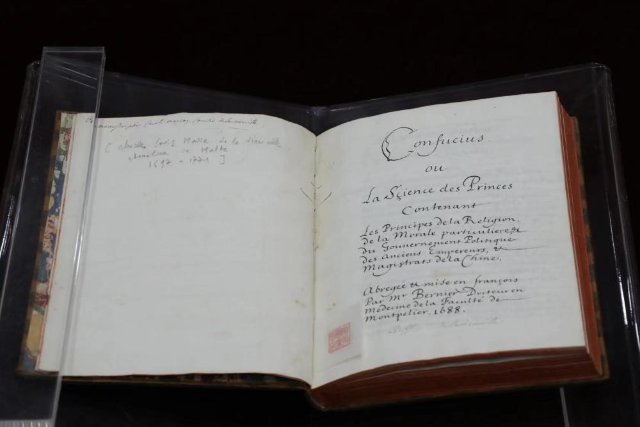 1697 - 1771 ]
Confucius
ou
La Sçience des Princes
Contenant
Les Principes de la Religion,
de la Morale particuliere &
du Gouvernement Politique
des Anciens Empereurs, &
Magistrats de la Chine,
Abregée & mise en françois
Par Mr Bernier Docteur en
Medecine de la Faculté de
Montpelier, 1688.